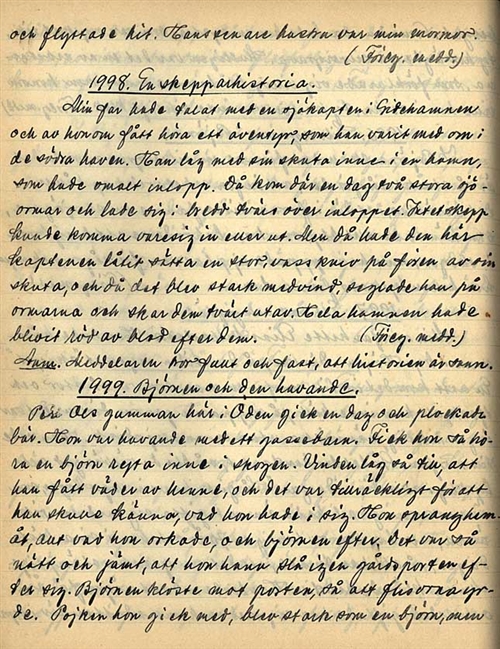 och flyttade hit. Hans senare hustru var min mormor.
(Föreg. medd.)
1998. En skepparhistoria.
Min far hade talat med en sjökapten i Eidehamnen
och av honom fått höra ett äventyr, som han varit med om i
de södra haven. Han låg med sin skuta inne i en hamn,
som hade smalt inlopp. Då kom där en dag två stora sjö-
ormar och lade sig i bredd tvärs över inloppet. Intet skepp
kunde komma varesig in eller ut. Men då hade den här
kaptenen låtit sätta en stor, vass kniv på fören av sin
skuta, och då det blev stark medvind, seglade han på
ormarna och skar dem tvärt utav. Hela hamnen hade
blivit röd av blod efter dem. (Föreg. medd.)
Anm. Meddelaren tror fullt och fast, att historien är sann.
1999. Björnen och den havande.
Per Ols gumman här i Öden gick en dag och plockade
bär. Hon var havande med ett gossebarn. Fick hon så hö-
ra en björn ryta inne i skogen. Vinden låg så till, att
han fått väder av henne, och det var tillräckligt för att
han skulle känna, vad hon hade i sig. Hon sprang hem-
åt, allt vad hon orkade, och björnen efter. Det var så
nätt och jämt, att hon hann slå igen gårdsporten ef-
ter sig. Björnen klöste mot porten, så att flisorna yr-
de. Pojken hon gick med, blev stark som en björn, men